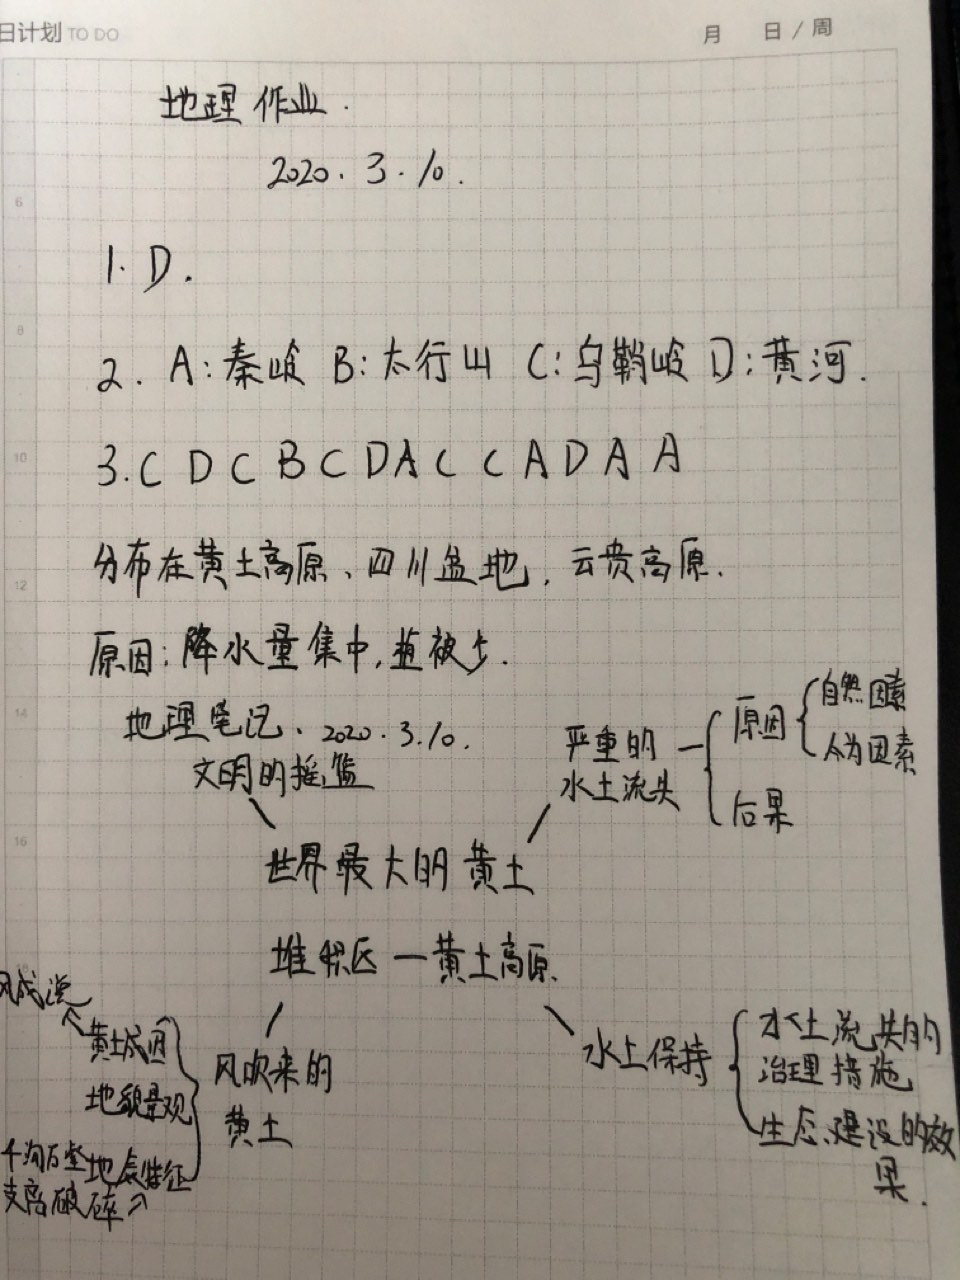 日计划 TO DO
月 日/周
地理作业.
2020.3.10.
6
1.D.
8
2. A:秦岐 B:太行山 C:乌鞘岐 D:黄河.
10
3.C D C B C D A C C A D A A
分布在黄土高原、四川盆地,云贵高原.
12
原因:降水量集中,植被少.
14
地理笔记、2020.3.10.
文明的摇篮
严重的
水土流失
原因
自然因素
人为因素
后果
16
世界最大的黄土
堆积区—黄土高原.
风成说
黄土成因
地貌景观
地表特征
千沟万壑
支离破碎
风吹来的
黄土
水土保持
水土流失的
治理措施
生态建设的效
果.